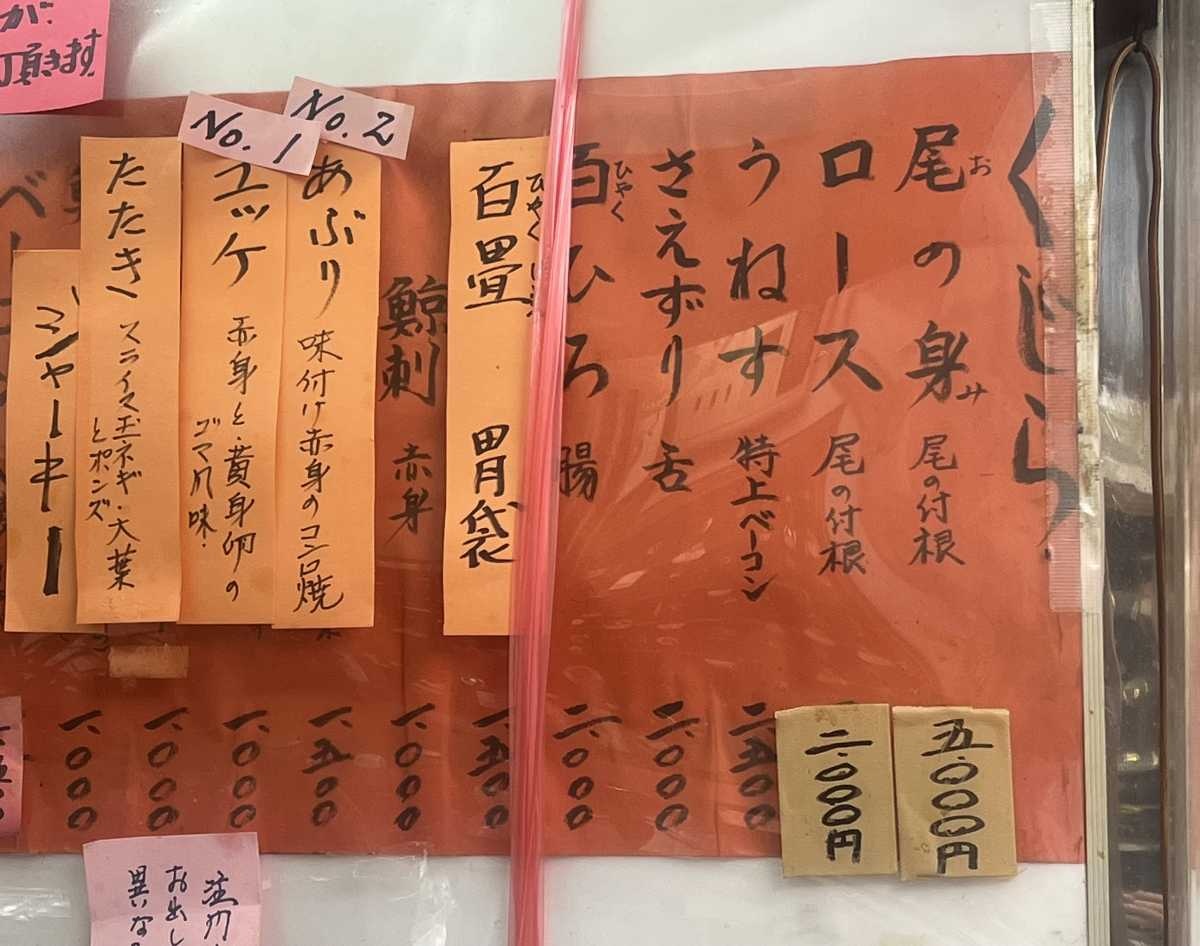 くじら
尾の身 尾の付根 五.000円
おみ
ロース 尾の付根 二.000円
うねす 特上ベーコン 二.五00
さえずり 舌 二.000
百ひろ 腸 二.000
ひゃく
百畳 胃袋 一.五00
ひゃく
鯨刺 赤身 一.000
No.2
あぶり 味付け赤身のコンロ焼 一.五00
No.1
ユッケ 赤身と黄身卵の
ゴマ風味. 一.000
たたき スライス玉ネギ・大葉
とポンズ 一.000
ジャーキー 一.000
が.
頂きます
お出し
異な